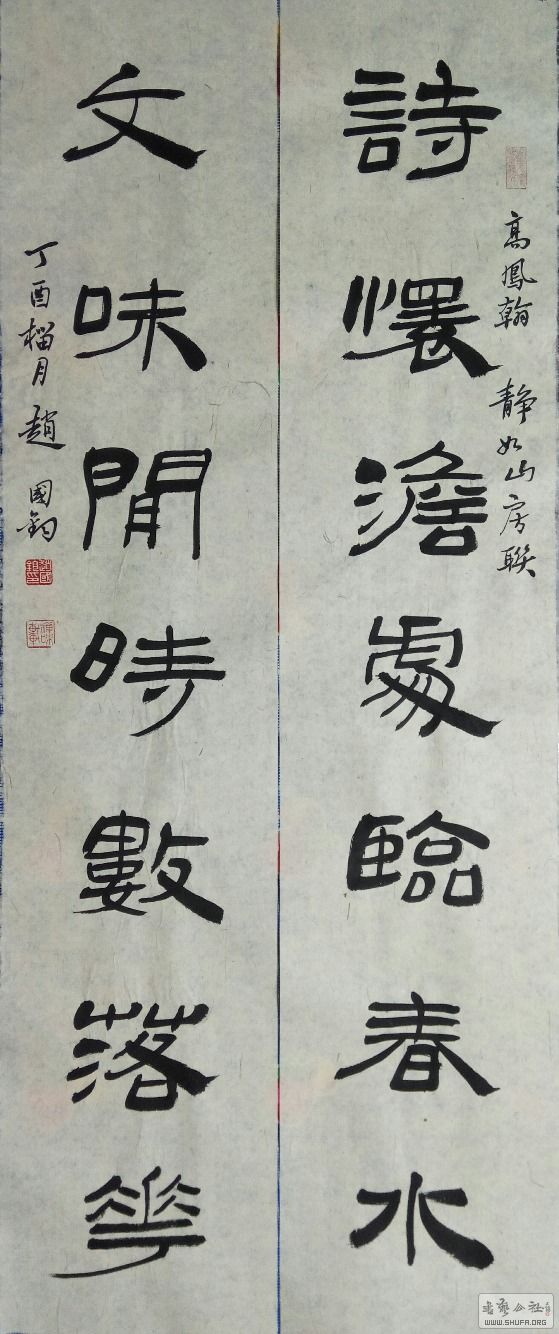 詩懷澹處臨春水
文味閒時數落花
高鳳翰 靜如山房聯
丁酉榴月趙國鈞
書藝公社
WWW.SHUFA.ORG